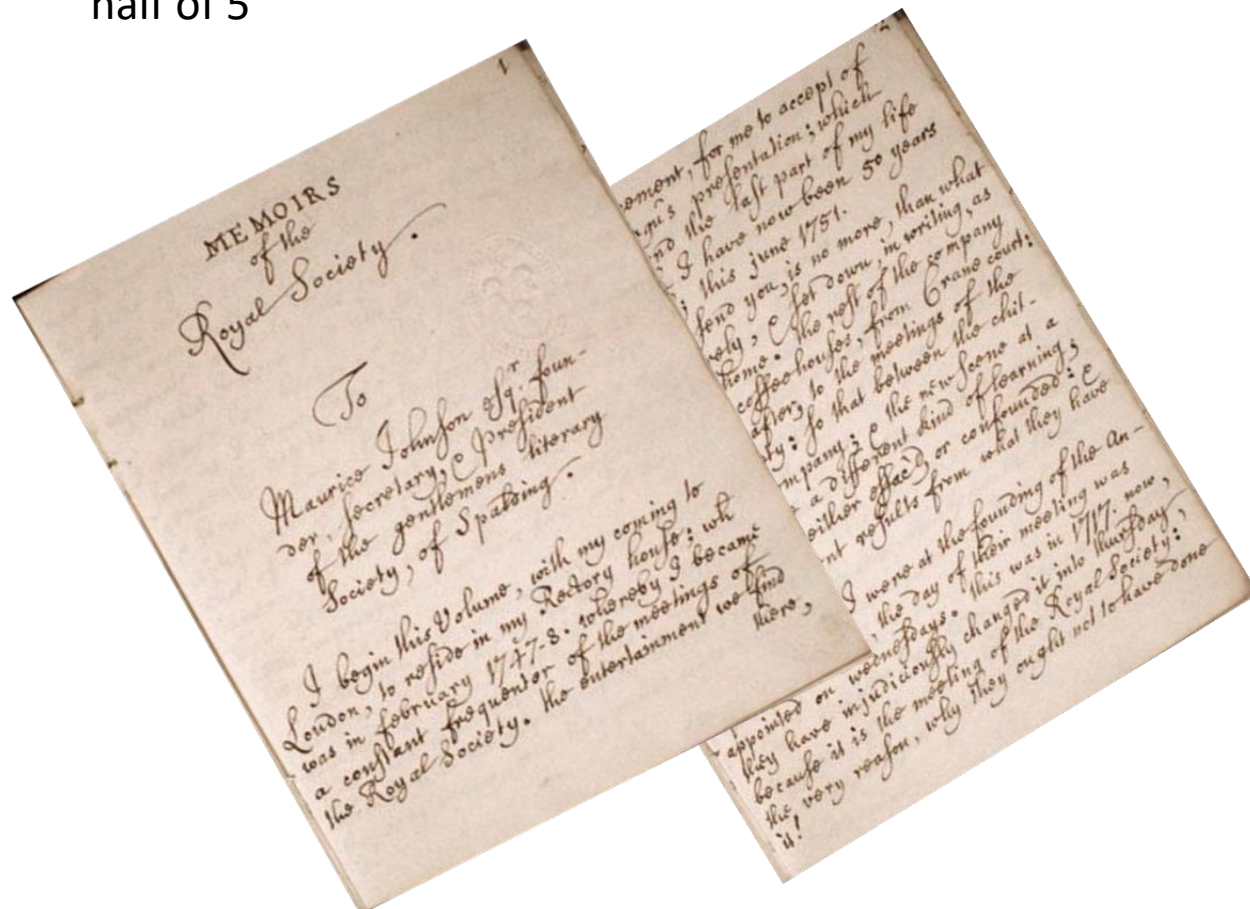 half of 5
1
MEMOIRS
of the
Royal Society.
To
Maurice Johnson Esqr. foun-
der, secretary, & president
of the gentlemens literary
Society, of Spalding.
I begin this Volume, with my coming to
London, to reside in my Rectory house: wh
was in february 1747-8. whereby I became
a constant frequenter of the meetings of
the Royal Society. the entertainment we find
there,
2
ement, for me to accept of
presentation; which
nd the last part of my life
I have now been 50 years
this june 1751.
send you, is no more, than what
ely, & set down, in writing, as
home. the rest of the company
coffee houses, from Crane court:
after, to the meetings of the
ty: so that between the chit-
mpany; & the new scene at a
a different kind of learning;
either effac'd or confounded: &
nt results from what they have
I were at the founding of the An-
the day of their meeting was
appointed on wednesdays. this was in 1717. now,
they have injudiciously changed it into thursday,
because it is the meeting of the Royal Society:
the very reason, why they ought not to have done
it!